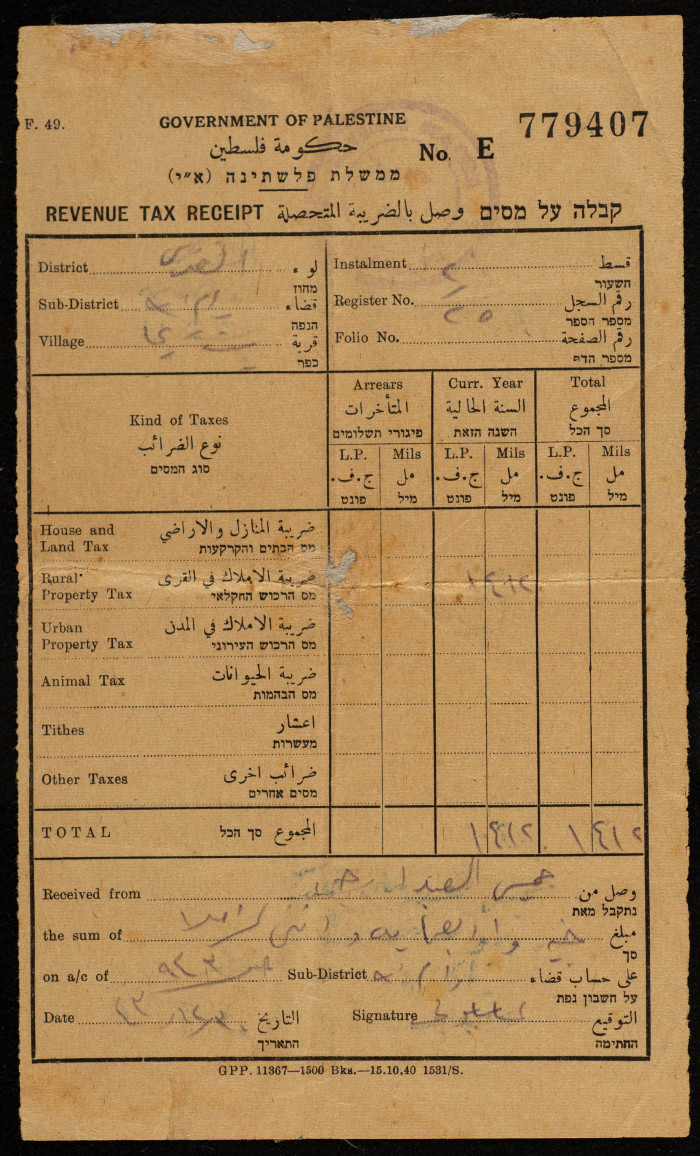 F. 49.
GOVERNMENT OF PALESTINE
حكومة فلسطين
ממשלת פלשתינה (א״י)
No. E 779407
REVENUE TAX RECEIPT وصل بالضريبة المتحصلة קבלה על מסים
District القدس لواء
מחוז
Sub-District رام الله قضاء
הנפה
Village قرية
כפר
Instalment قسط
השעור
Register No. رقم السجل
מספר הספר
Folio No. رقم الصفحة
מספר הדף
Kind of Taxes
نوع الضرائب
סוג המסים
Arrears
المتأخرات
פיגורי תשלומים
Curr. Year
السنة الحالية
השנה הזאת
Total
المجموع
סך הכל
L.P. Mils L.P. Mils L.P. Mils
ج.ف. مل ج.ف. مل ج.ف. مل
פונט מיל פונט מיל פונט מיל
House and ضريبة المنازل والاراضي
Land Tax מס הבתים והקרקעות
Rural ضريبة الاملاك في القرى
Property Tax מס הרכוש החקלאי
١ ٤١٢
Urban ضريبة الاملاك في المدن
Property Tax מס הרכוש העירוני
Animal Tax ضريبة الحيوانات
מס הבהמות
Tithes اعشار
מעשרות
Other Taxes ضرائب اخرى
מסים אחרים
TOTAL المجموع סך הכל ١ ٤١٢ ١ ٤١٢
Received from وصل من
נתקבל מאת
the sum of مبلغ
סך
on a/c of ٩٤٣ Sub-District رام الله على حساب قضاء
על חשבון נפת
Date التاريخ
התאריך
Signature التوقيع
החתימה
GPP. 11367—1500 Bks.—15.10.40 1531/S.